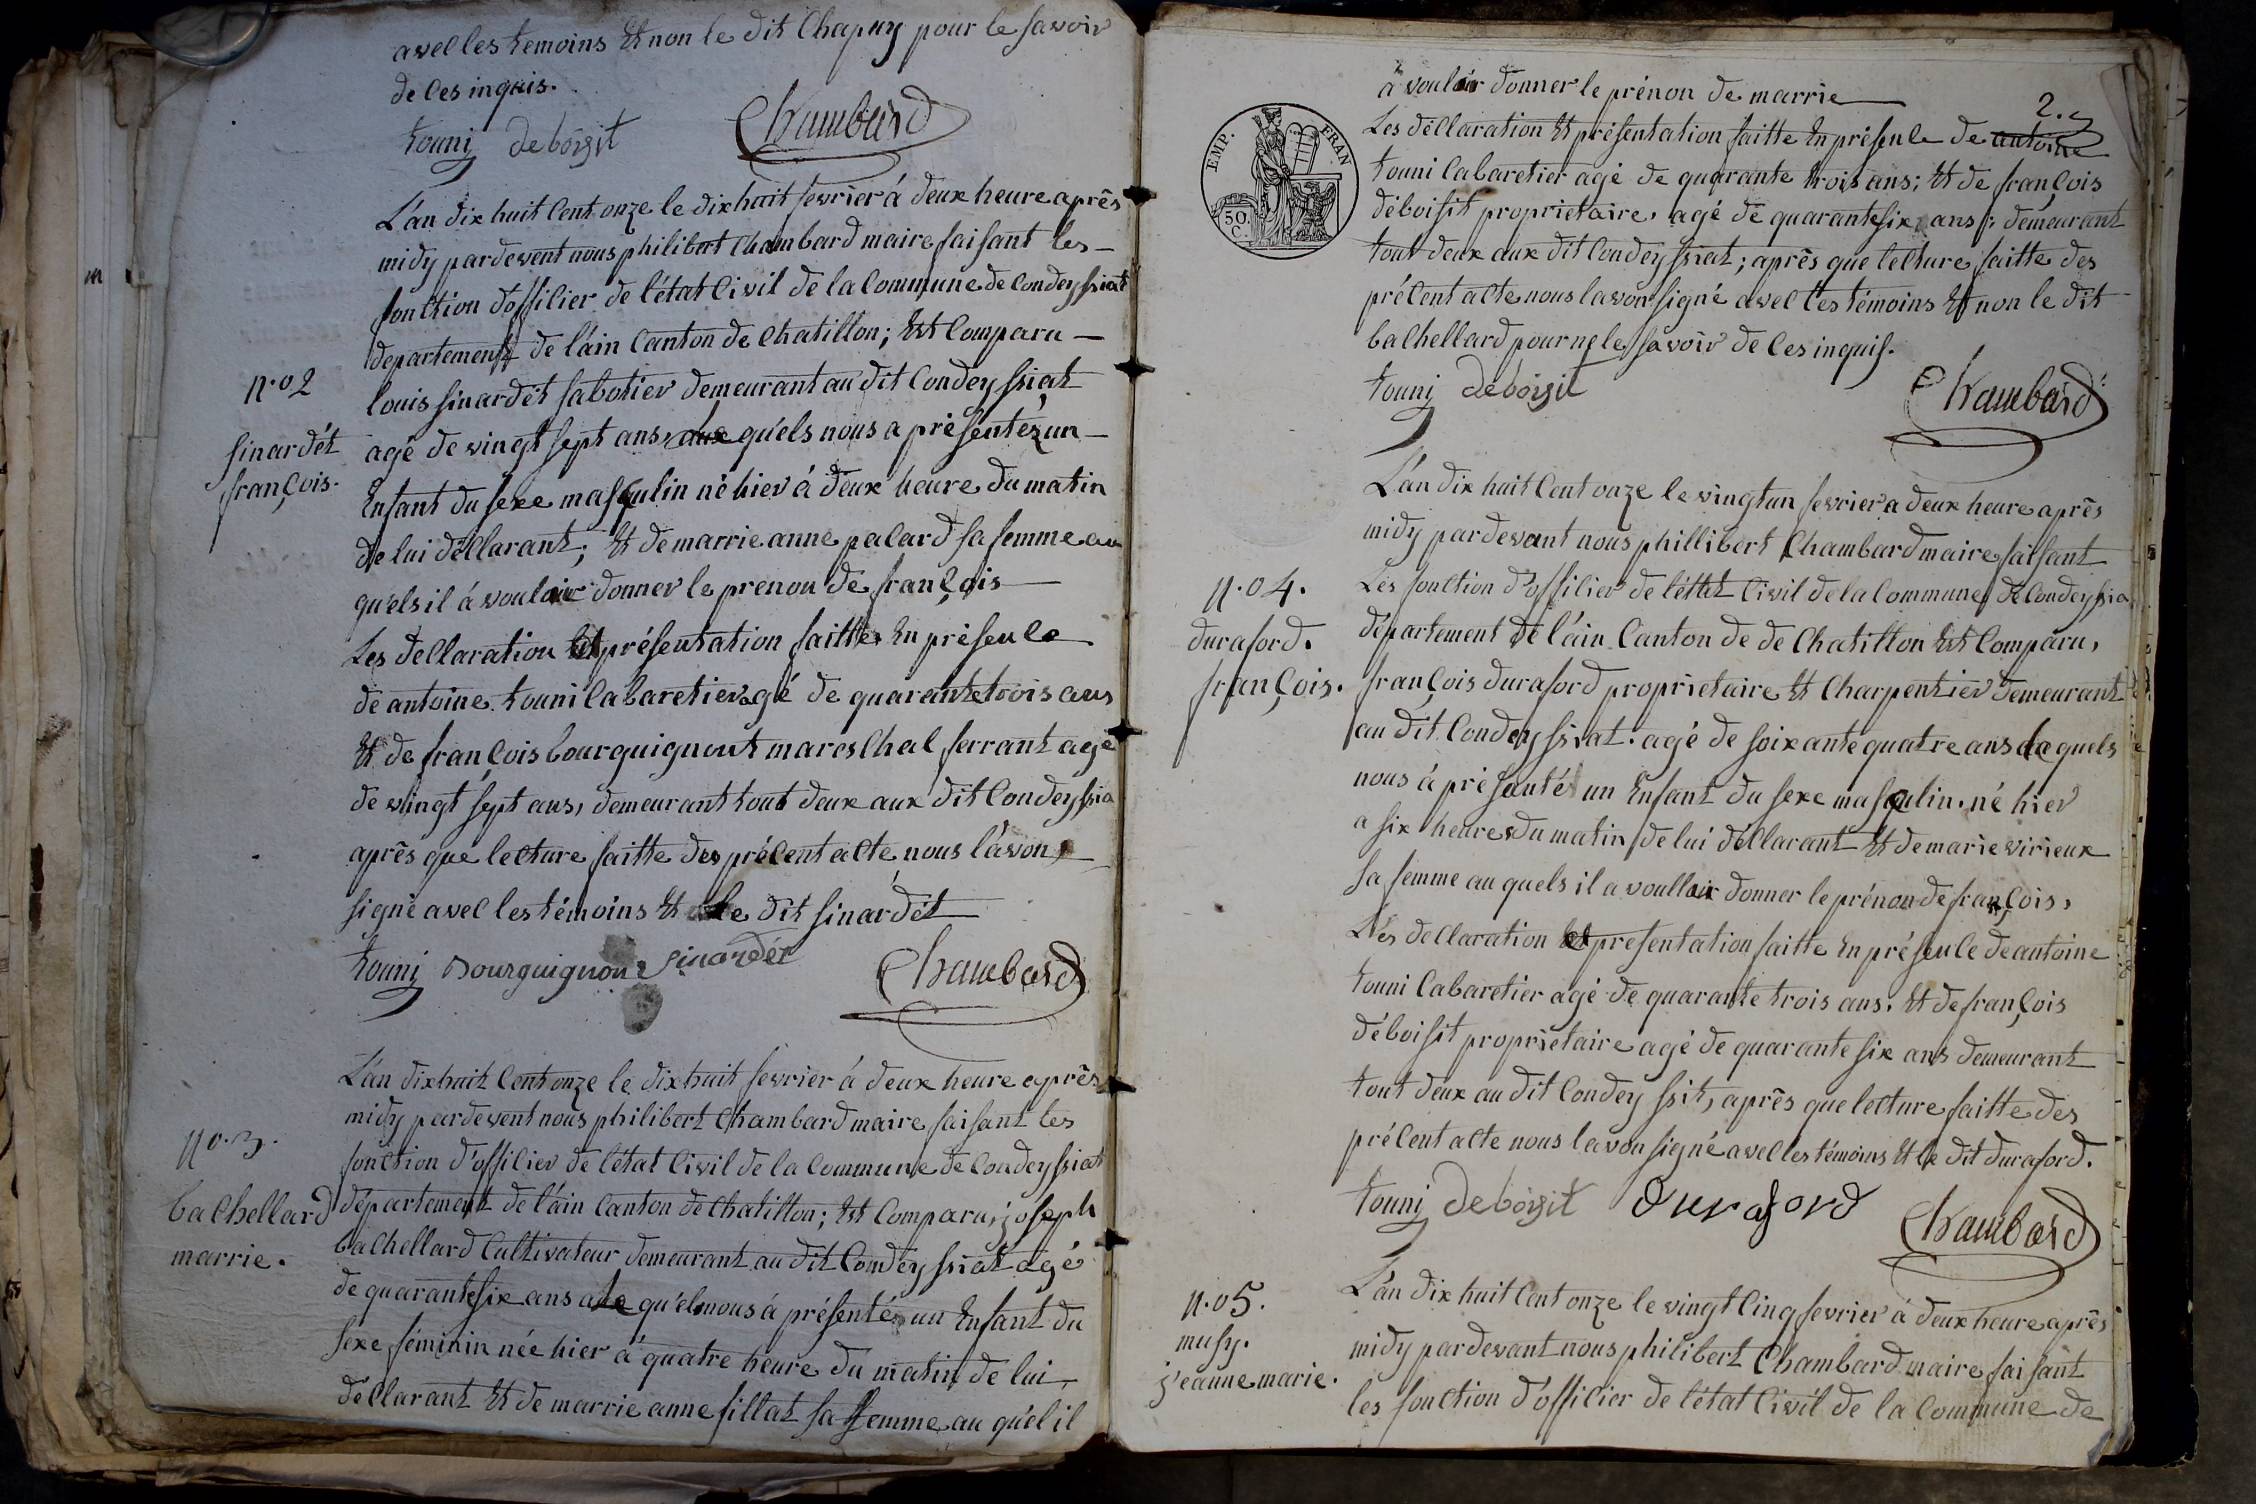 avec les temoins Et non le dit Chapuy pour le savoir
de ces inquis.
touni deboisit Chambard
L'an dix huit Cent onze le dixhuit fevrier à deux heure après
midy pardevent nous philibert Chambard maire faisant les
fonction d'officier de l'état Civil de la Commune de Condeyssiat
departement de l'ain Canton de Chatillon; Est Comparu
n.o 2
louis sinardét sabotier demeurant au dit Condeyssiat
sinardét
agé de vingt sept ans, qu'els nous a présentéz un
françois.
Enfant du sexe masculin né hier à deux heure du matin
de lui déclarant; Et de marrie anne palard sa femme au
qu'els il à vouloir donner le prenon de françois
Les declaration Et présentation faitte En présence
de antoine touni Cabaretier agé de quarante trois ans
Et de françois bourguignont mareschal ferrant agé
de vingt sept ans, demeurant tout deux aux dit Condeyssia
après que lecture faitte des précent acte nous l'avons
signé avec les témoins Et le dit sinardét
touni Bourguignon sinardét Chambard
L'an dixhuit Cent onze le dixhuit fevrier à deux heure après
midy pardevent nous philibert Chambard maire faisant les
no. 3.
fonction d'officier de l'état Civil de la Commune de Condeyssiat
bachellard
département de l'ain Canton de Chatillon; Est Comparu, joseph
marrie.
bachellard Cultivateur demeurant au dit Condeyssiat agé
de quarante six ans qu'el nous à présenté un Enfant du
sexe féminin née hier à quatre heure du matin de lui
déclarant Et de marrie anne fillat sa femme au qu'el il
à vouloir donner le prénon de marrie
2.
EMP. FRAN
50. C.
Les déclaration Et présentation faitte En présence de antoine
touni Cabaretier agé de quarante trois ans; Et de françois
déboisit proprietaire, agé de quarante six ans; demeurant
tout deux aux dit Condeyssiat; après que lecture faitte des
précent acte nous lavon signé avec les témoins Et non le dit
bachellard pour ne le savoir de ces inquis.
touni deboisit Chambard
L'an dix huit Cent onze le vingt un fevrier a deux heure après
midy pardevant nous phillibert Chambard maire faisant
n.o 4.
Les fonction d'officier de l'éttat Civil de la Commune de Condeyssia
duraford.
département de l'ain Canton de de Chatillon Est Comparu,
françois.
françois duraford proprietaire Et Charpentier demeurant
au dit Condeyssiat. agé de soixante quatre ans le quels
nous à présanté un Enfant du sexe masculin. né hier
a six heures du matin de lui déclarant Et de marie virieux
sa femme au quels il a voulloir donner le prénon de françois,
Lés declaration Et presentation faitte En présence de antoine
touni Cabaretier agé de quarante trois ans. Et de françois
déboisit propriétaire agé de quarante six ans demeurant
tout deux au dit Condeyssit, après que lecture faitte des
précent acte nous lavon signé avec les témoins Et le dit duraford.
touni deboisit duraford Chambard
n.o 5.
L'an dix huit Cent onze le vingt Cinq fevrier à deux heure après
musy.
midy pardevant nous philibert Chambard maire faisant
jeanne marie.
les fonction d'officier de l'état Civil de la Commune de